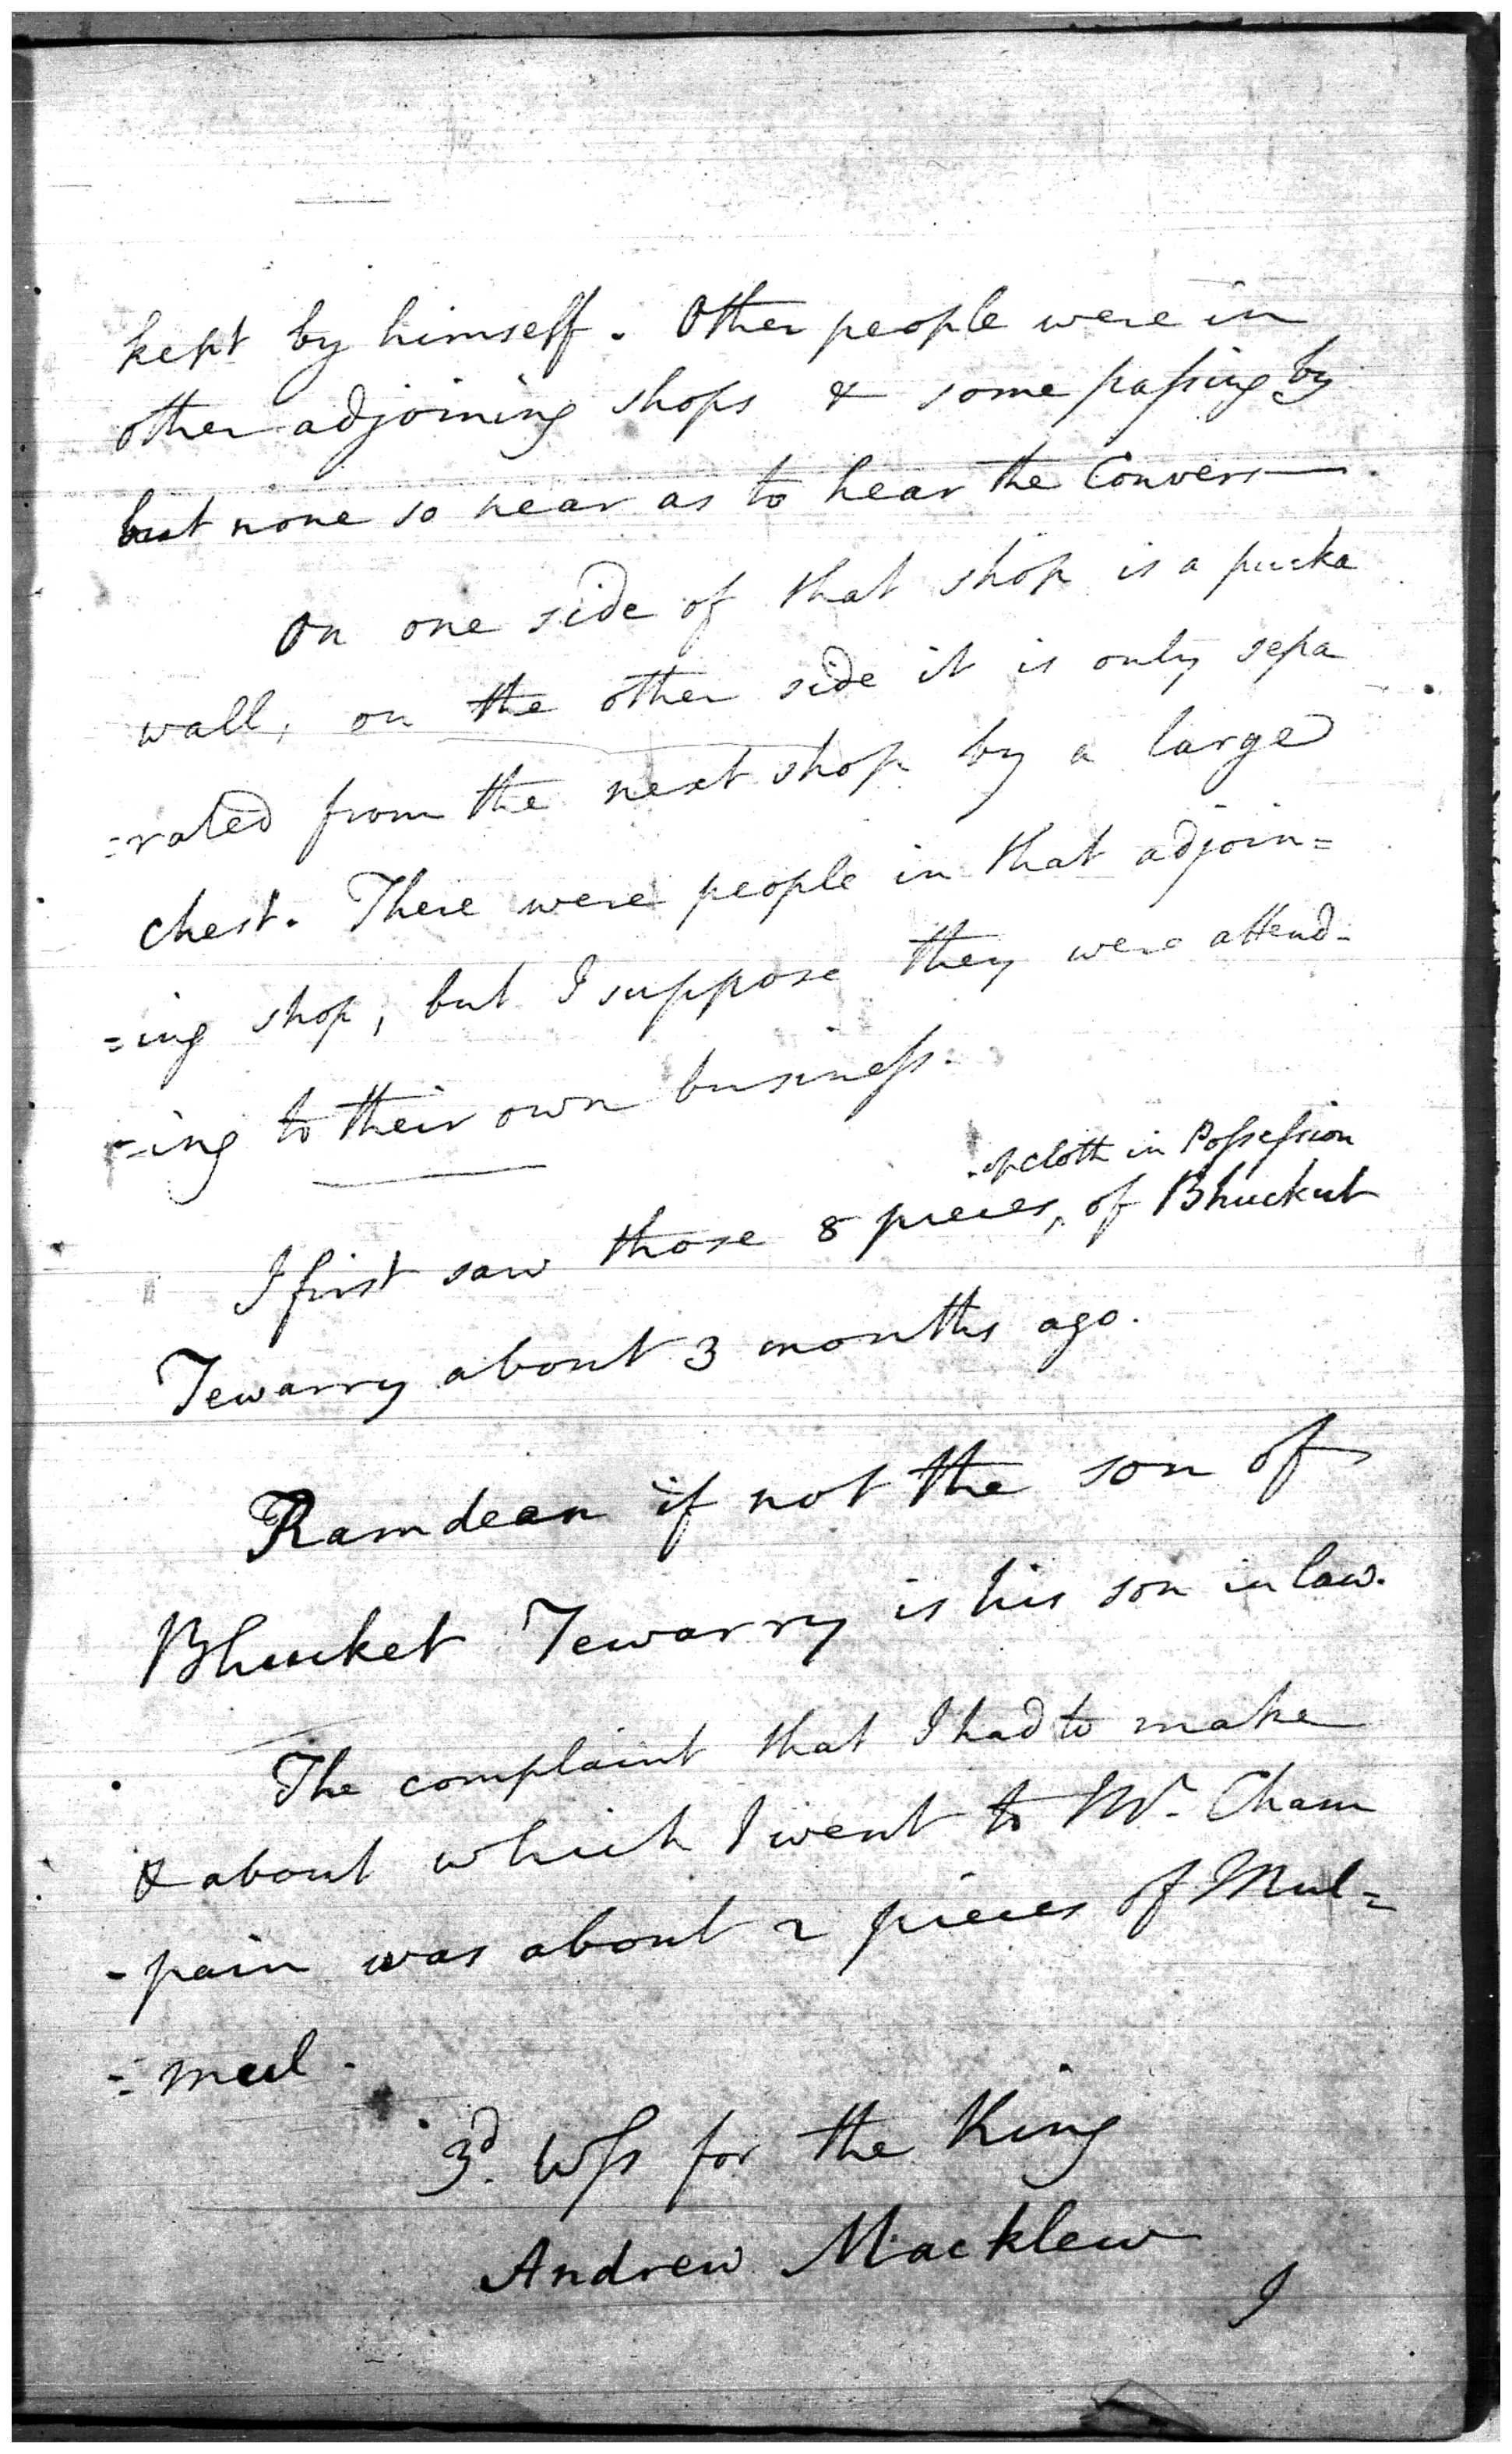 kept by himself. Other people were in
other adjoining shops & some passing by
but none so near as to hear the Convers—.
On one side of that shop is a pucka
wall, on the other side it is only sepa
=rated from the next shop by a large
chest. There were people in that adjoin=
=ing shop, but I suppose they were attend-
=ing to their own business.
of cloth in Possession
I first saw those 8 pieces, of Bhuckut
Tewarry about 3 months ago.
Ramdean if not the son of
Bhucket Tewarry is his son in law.
The complaint that I had to make
& about which I went to Mr. Cham
-pain was about 2 pieces of Mul=
=mul.
3d. Wss for the King
Andrew Macklew
I